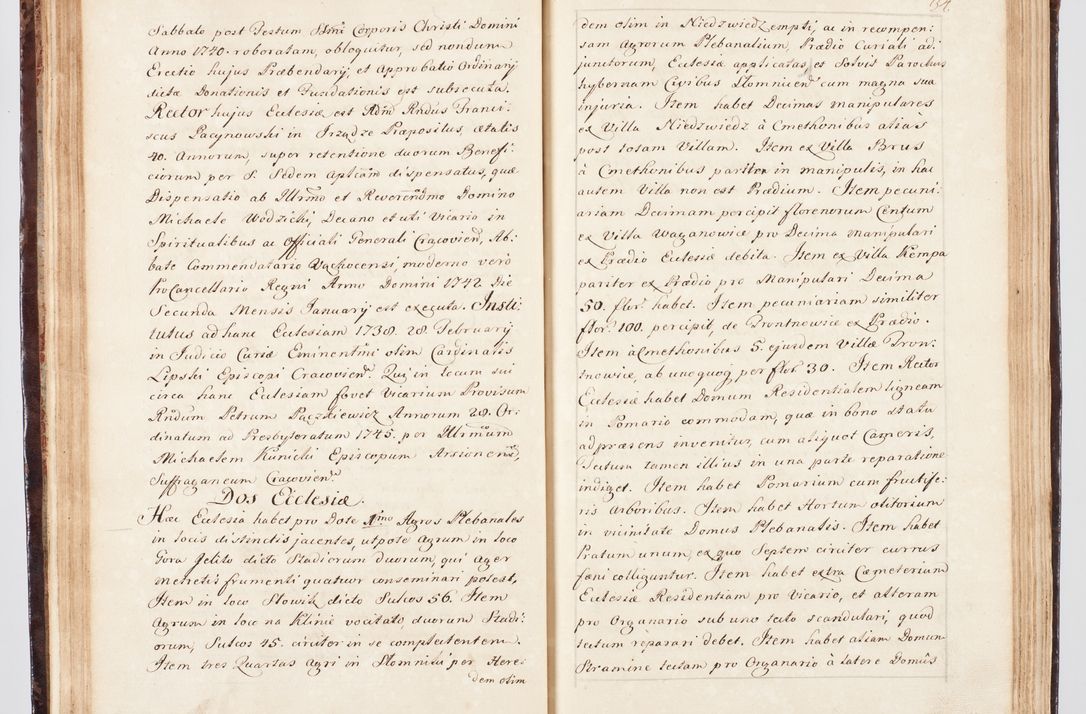 Sabbato post Festum SSmi Corporis Christi Domini
Anno 1740. roboratam, obloquitur, sed nondum
Erectio hujus Præbendarij, et Approbatio Ordinarij
dictæ Donationis et Fundationis est subsecuta.
Rector hujus Ecclesiæ est Adm Rndus Franci:
scus Pacynowski in Irządze Præpositus, ætatis
40. Annorum, super retentione duorum Benefi:
ciorum per S. Sedem Aplicam dispensatus, quæ
Dispensatio ab Illrmo et Reverendmo Domino
Michaele Wodzicki, Decano et uti Vicario in
Spiritualibus ac Officiali Generali Cracovien, Ab:
bate Commendatario Wąchocensi, moderno vero
ProCancellario Regni Anno Domini 1742 Die
Secunda Mensis Januarij est executa. Insti:
tutus ad hanc Ecclesiam 1738. 28. Februarij
in Judicio Curiæ Eminentmi olim Cardinalis
Lipski Episcopi Cracovien. Qui in locum sui
circa hanc Ecclesiam fovet Vicarium Provisum
Rndum Petrum Paczkiewicz Annorum 28. Or:
dinatum ad Presbyteratum 1745. per Illrmum
Michaelem Kunicki Episcopum Arsionenem,
Suffraganeum Cracovien.
Dos Ecclesiæ.
Hæc Ecclesia habet pro Dote 1mo Agros Plebanales
in locis distinctis jacentes, utpote Agrum in loco
Gora Jelito dicto Stadiorum duorum, qui Ager
Mencets frumenti quatuor conseminari potest,
Item in loco Słowik dicto Sulcos 56. Item
Agrum in loco na Klinie vocitato duorum Stadi:
orum, Sulcos 45. circiter in se complectentem.
Item tres Quartas Agri in Słomniki per Here:
dem olim
dem olim in Niedzwiedz empti, ac in recompen:
sam Agrorum Plebanalium, Prædio Curiali ad:
junctorum, Ecclesiæ applicatas, et Solvit Parochus
hybernam Civibus Słomnicen cum magna sua
injuria. Item habet Decimas manipulares
ex Villa Niedzwiedz à Cmethonibus alias
post totam Villam. Item ex Villa Brus
à Cmethonibus pariter in manipulis, in hac
autem Villa non est Prædium. Item pecuni:
ariam Decimam percipit florenorum Centum
ex Villa Waganowice pro Decima manipulari
ex Prædio Ecclesiæ debita. Item ex Villa Kempa
pariter ex Prædio pro Manipulari Decima
50. flor. habet. Item pecuniariam similiter
flor. 100. percipit, de Trontnowice ex Prædio.
Item à Cmethonibus 5. ejusdem Villæ Tron:
tnowice, ab unoquoq per flor 30. Item Rector
Ecclesiæ habet Domum Residentialem ligneam
in Pomario commodam, quæ in bono statu
ad præsens invenitur, cum aliquot Cameris,
Tectum tamen illius in una parte reparatione
indiget. Item habet Pomarium cum fructife:
ris Arboribus. Item habet Hortum olitorium
in vicinitate Domus Plebanalis. Item habet
Pratum unum, ex quo Septem circiter currus
fœni colliguntur. Item habet extra Cæmeterium
Ecclesiæ Residentiam pro Vicario, et alteram
pro Organario sub uno tecto scandulari, quod
tectum reparari debet. Item habet aliam Domum
Stramine tectam pro Organario à latere Domûs